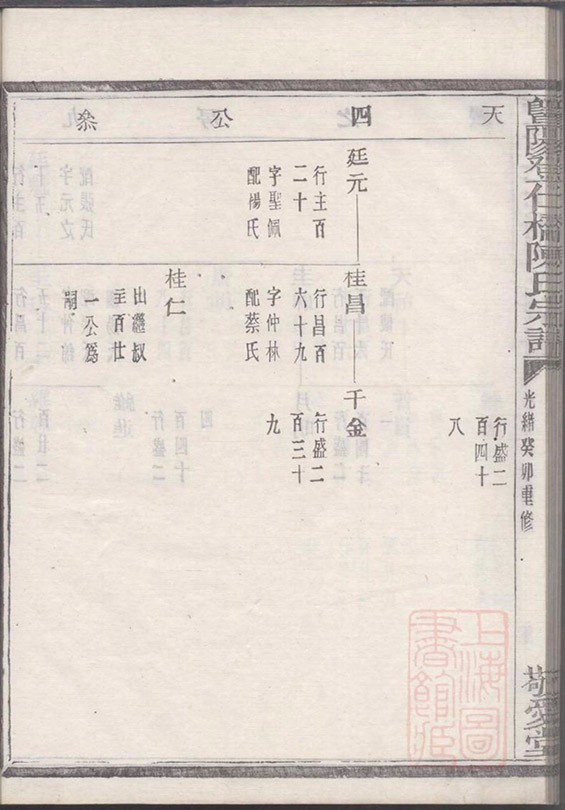 暨陽登仕橋陳氏宗譜
光緒癸卯重修
敬愛堂
天四公
行盛二
百四十
八
廷元
行主百
二十
字聖佩
配楊氏
桂昌
行昌百
六十九
字仲林
配蔡氏
千金
行盛二
百三十
九
桂仁
出繼叔
主百廿
一公爲
嗣
上海圖
書館藏